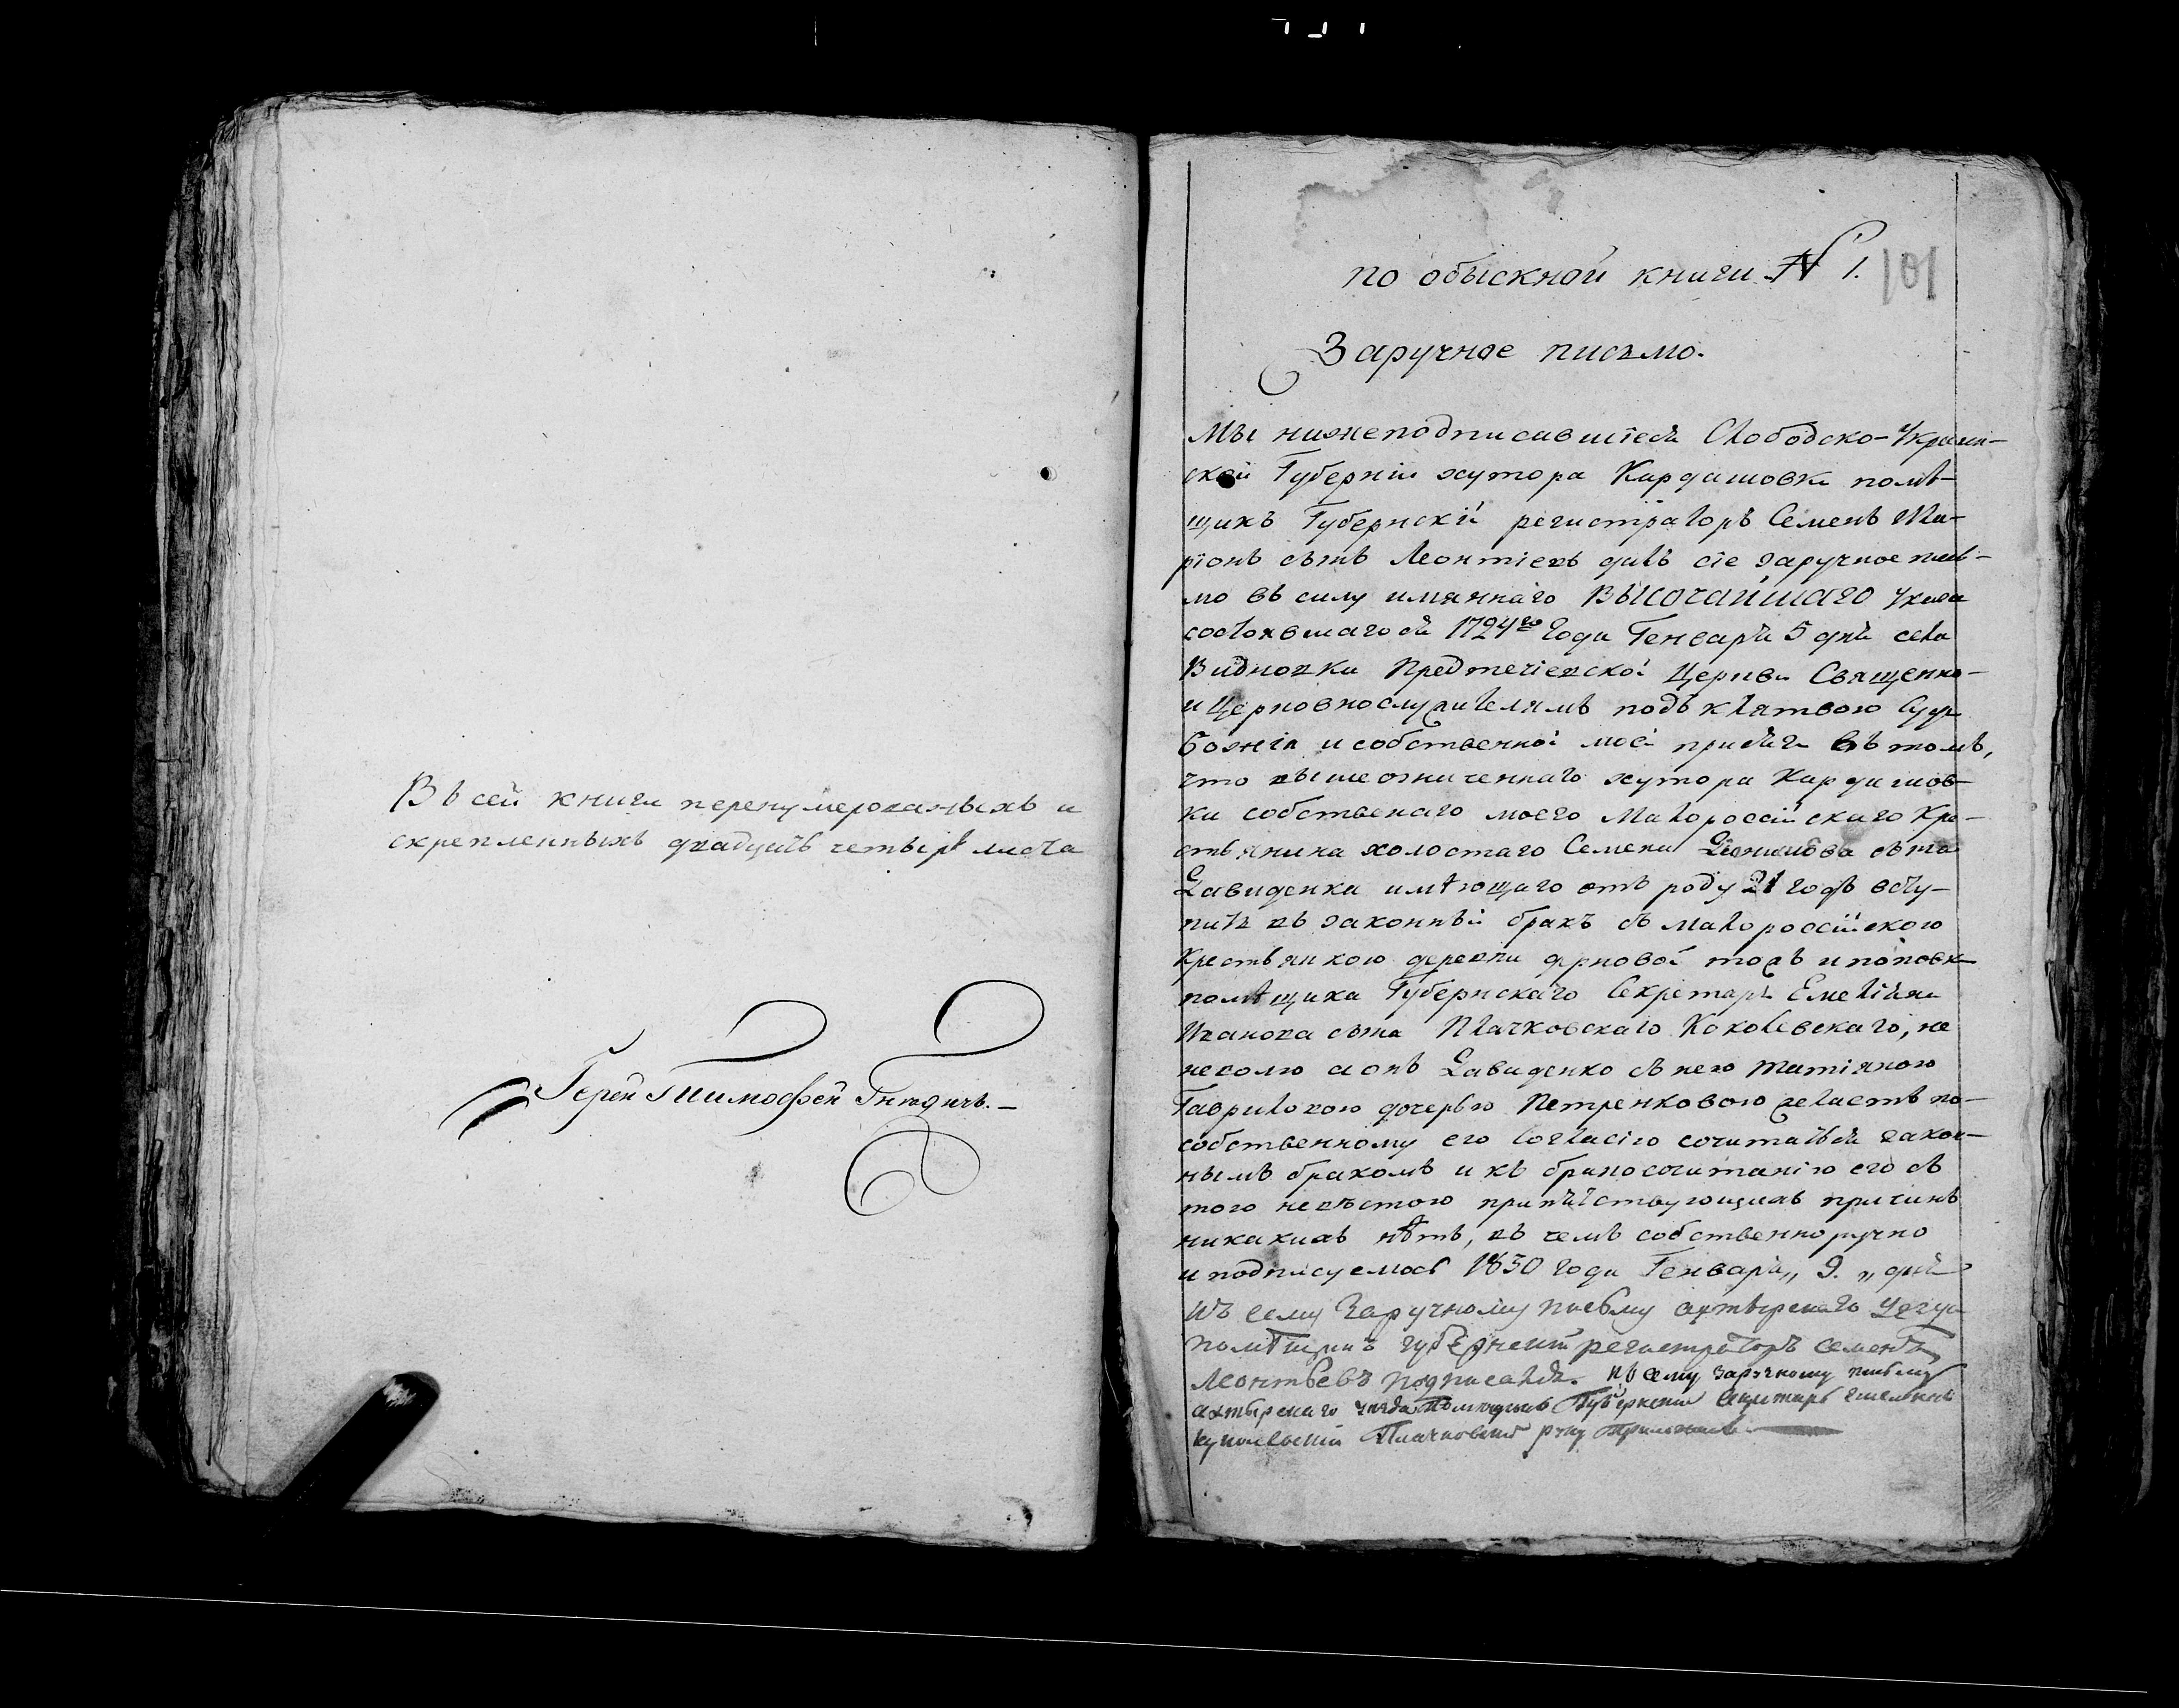 Въ сей книги перенумерованыхъ и
скрепленныхъ двадцать четыри листа
Іерей Тимофей Гнѣдичь.
по обыскной книги N 1.
101
Заручное писмо.
Мы нижеподписавшіеся Слободско-Украин-
ской Губерніи хутора Кардашовки помѣ-
щикъ Губернскій регистраторъ Семенъ Ила-
ріонъ сынъ Леонтіевъ далъ сіе заручное пись-
мо въ силу имяннаго ВЫСОЧАЙШАГО Указа
состоявшагося 1724го Года Генваря 5 дня села
Видновки Предтечіевской Церкви Священно-
и Церковнослужителямъ подъ клятвою Суда
Божія и собственной моей присяги въ томъ,
что вышеозначеннаго хутора Кардашов-
ки собственаго моего Малороссійскаго Кре-
стьянина холостаго Семена сына
Давиденка имѣющаго отъ роду 21 годъ всту-
пить въ законный бракъ съ малороссійскою
Крестьянкою деревни дерновой тожъ и поповк
помѣщика Губернскаго Секретаря Емеліяна
Иванова сына Плачковскаго Коколевскаго, не
неволю а онъ Давиденко съ нею Татіяною
Гавриловою дочерью Петренковою желаетъ по-
собственному его Согласію сочитаться закон-
нымъ бракомъ и къ бракосочитанію его съ
тою невѣстою препятствующихъ причинъ
никакихъ нѣтъ, въ чемъ собственноручно
и подписуемось 1830 Года Генваря „ 9. „ дня
Къ сему Заручному писбму ахтырскаго уезда
помѣщикъ губернскій регистраторъ семенъ
Леонтьевъ подписался. Къ сему заручному писбму
ахтырскаго уезда помещикъ Губернский Секретарь Емелиан
Плачковский руку приложилъ